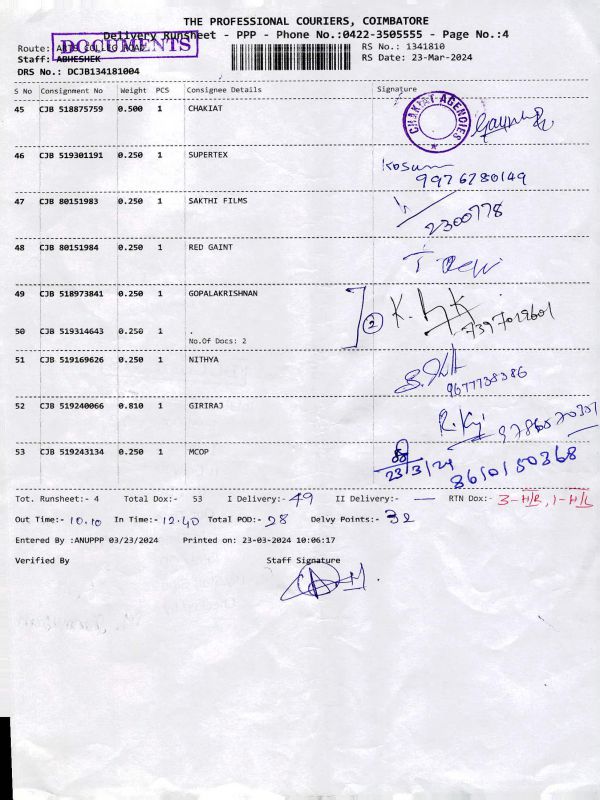 THE PROFESSIONAL COURIERS, COIMBATORE
Delivery Runsheet - PPP - Phone No.:0422-3505555 - Page No.:4
Route: ARTS COLLEG ROAD
DOCUMENTS
RS No.: 1341810
Staff: ABHESHEK
RS Date: 23-Mar-2024
DRS No.: DCJB134181004
S No Consignment No Weight PCS Consignee Details Signature
45 CJB 518875759 0.500 1 CHAKIAT
CHAKIAT AGENCIES
46 CJB 519301191 0.250 1 SUPERTEX
9976780149
47 CJB 80151983 0.250 1 SAKTHI FILMS
2300778
48 CJB 80151984 0.250 1 RED GAINT
49 CJB 518973841 0.250 1 GOPALAKRISHNAN
2
50 CJB 519314643 0.250 1 .
No.Of Docs: 2
51 CJB 519169626 0.250 1 NITHYA
9677738386
52 CJB 519240066 0.810 1 GIRIRAJ
53 CJB 519243134 0.250 1 MCOP
23/3/24
8610150368
Tot. Runsheet:- 4 Total Dox:- 53 I Delivery:- 49 II Delivery:- — RTN Dox:- 3-H/R, 1-H/L
Out Time:- 10.10 In Time:- 12.40 Total POD:- 28 Delvy Points:- 32
Entered By :ANUPPP 03/23/2024 Printed on: 23-03-2024 10:06:17
Verified By Staff Signature